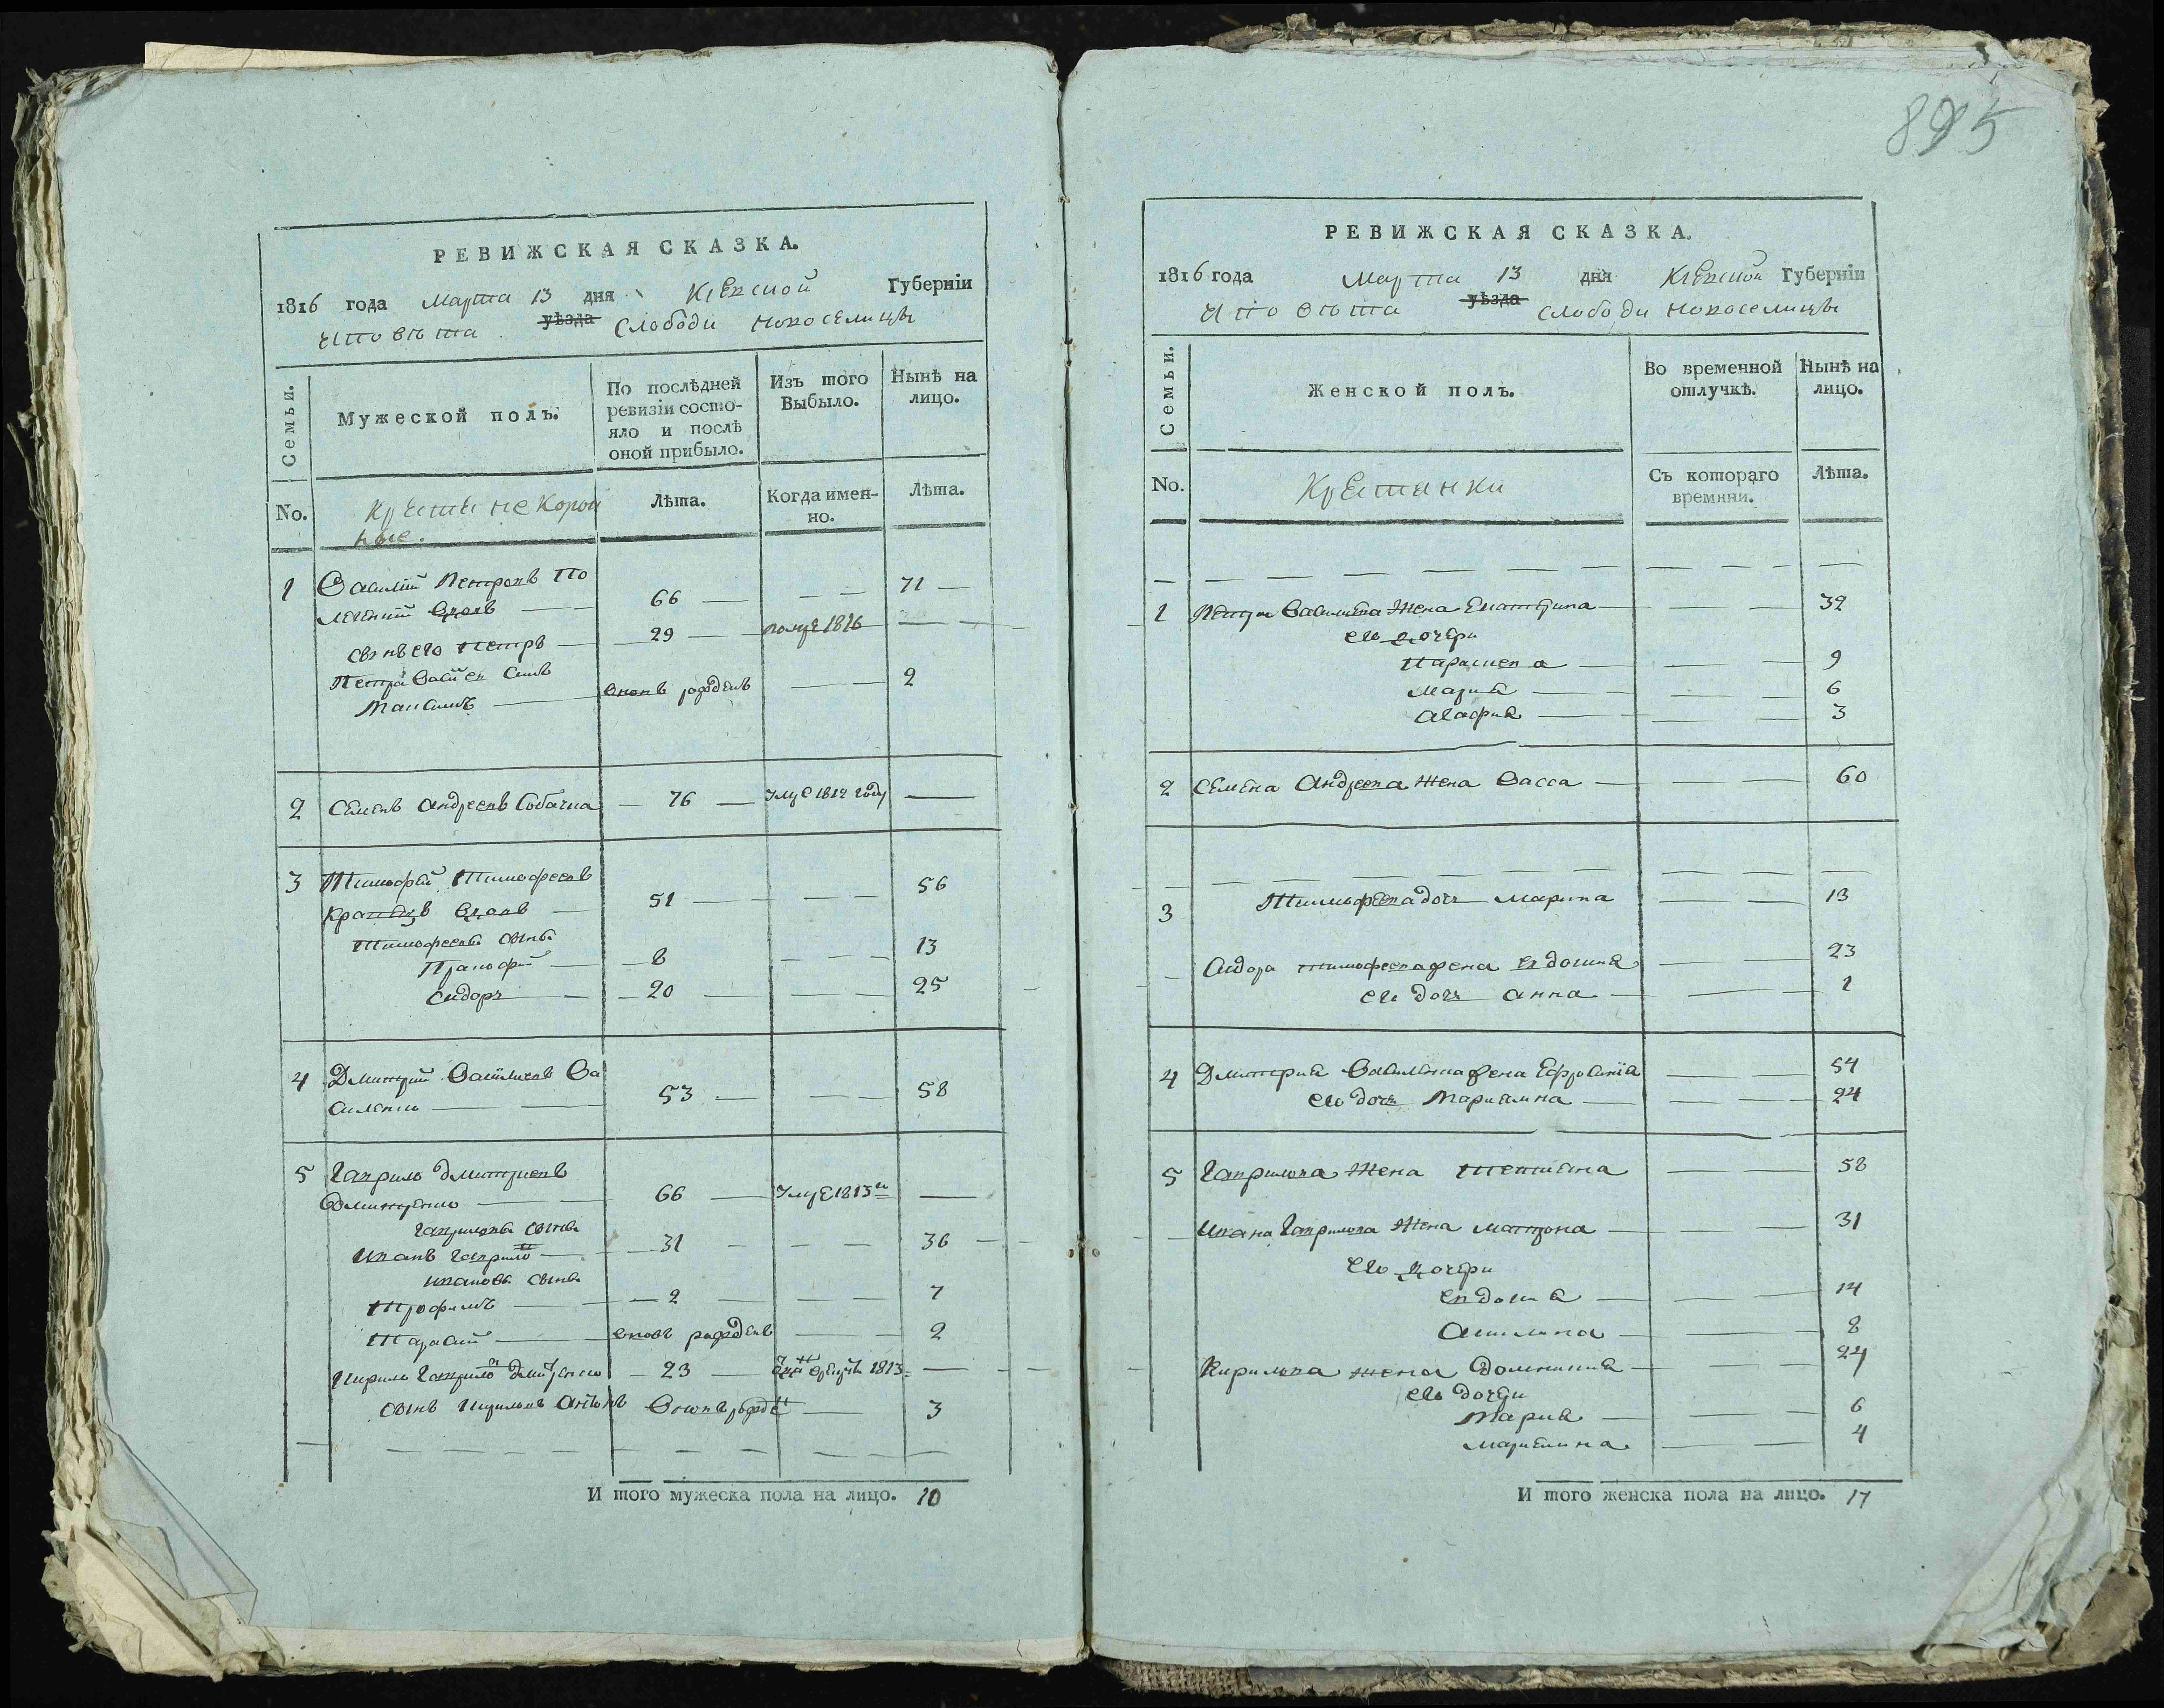 895
РЕВИЖСКАЯ СКАЗКА.
1816 года Марта 13 дня Киевской Губерніи
уѣзда Слободи Новоселицы
Семьи.
Мужеской полъ.
По послѣдней ревизіи состо-
яло и послѣ
оной прибыло.
Изъ того
Выбыло.
Нынѣ на
лицо.
No.
Лѣта.
Когда имен-
но.
Лѣта.
1 Василій Петровъ По
вдовъ 66 71
сынъ его Петръ 29 1816
сынъ
Максимъ вновь рожденъ 2
2 Семенъ Андреевъ Собачка 76 умре 1812 году
3 Тимофей Тимофеевъ
Кравецъ вдовъ 51 56
Тимофеевы сыны
Пракофій 8 13
Сидоръ 20 25
4 Дмитрій Васильевъ Ва
силенко 53 58
5 Гаврило Дмитріевъ
Дмитренко 66 умре 1813
Гавриловы сыны
Иванъ Гаврило 31 36
Ивановы сыны
Трофимъ 2 7
Тарасій вновь рожденъ 2
Кирило Гаврило 23 1813
сынъ Кириловъ Антонъ 3
И того мужеска пола на лицо. 10
РЕВИЖСКАЯ СКАЗКА.
1816 года Марта 13 дня Киевской Губерніи
уѣзда Слободи Новоселицы
Семьи.
Женской полъ.
Во временной
отлучкѣ.
Нынѣ на
лицо.
No.
Крестянки
Съ котораго
времяни.
Лѣта.
1 Петра Васильева Жена Екатерина 32
его дочери
Парасцева 9
Марія 6
Агафія 3
2 Семена Андреева Жена Васса 60
3 Тимофеева дочь Марина 13
Сидора Тимофеева жена Евдокия 23
его дочь Анна 1
4 Дмитрия Васильева жена Ефросинія 54
его дочь Мариамна 24
5 Гаврилова Жена Тетияна 58
Ивана Гаврилова Жена Матрона 31
его дочери
Евдокия 14
Акилина 8
Кирилова жена Домникия 24
его дочери
Мария 6
Мариамна 4
И того женска пола на лицо. 17